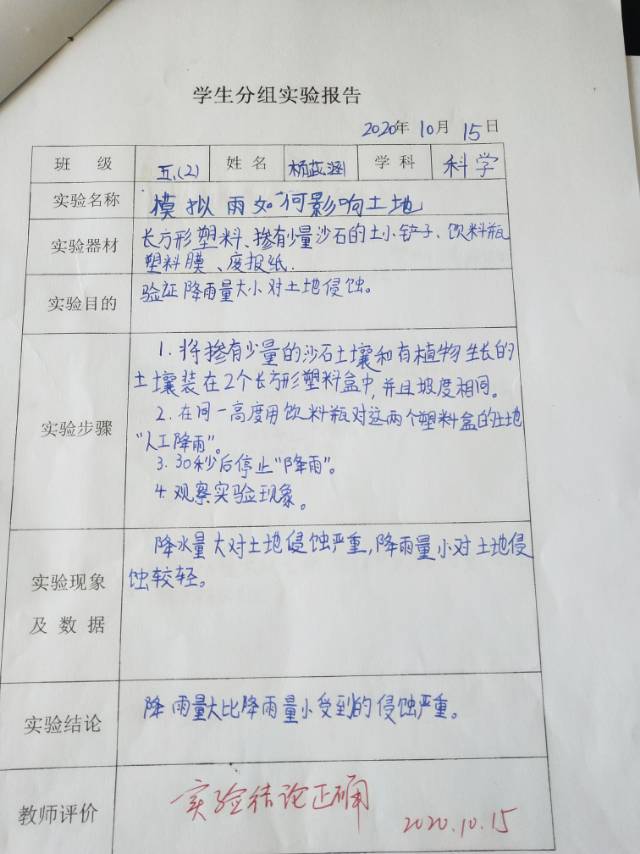 学生分组实验报告
2020年 10月 15日
班 级 五.(2) 姓 名 杨蕊涵 学 科 科学
实验名称 模拟雨如何影响土地
实验器材 长方形塑料、掺有少量沙石的土小铲子、饮料瓶
塑料膜、废报纸.
实验目的 验证降雨量大小对土地侵蚀。
实验步骤
1.将掺有少量的沙石土壤和有植物生长的
土壤装在2个长方形塑料盒中,并且坡度相同。
2.在同一高度用饮料瓶对这两个塑料盒的土地
“人工降雨”。
3.30秒后停止“降雨”。
4.观察实验现象。
实验现象
及 数 据
降水量大对土地侵蚀严重,降雨量小对土地侵
蚀较轻。
实验结论 降雨量大比降雨量小受到的侵蚀严重。
教师评价 实验结论正确
2020.10.15